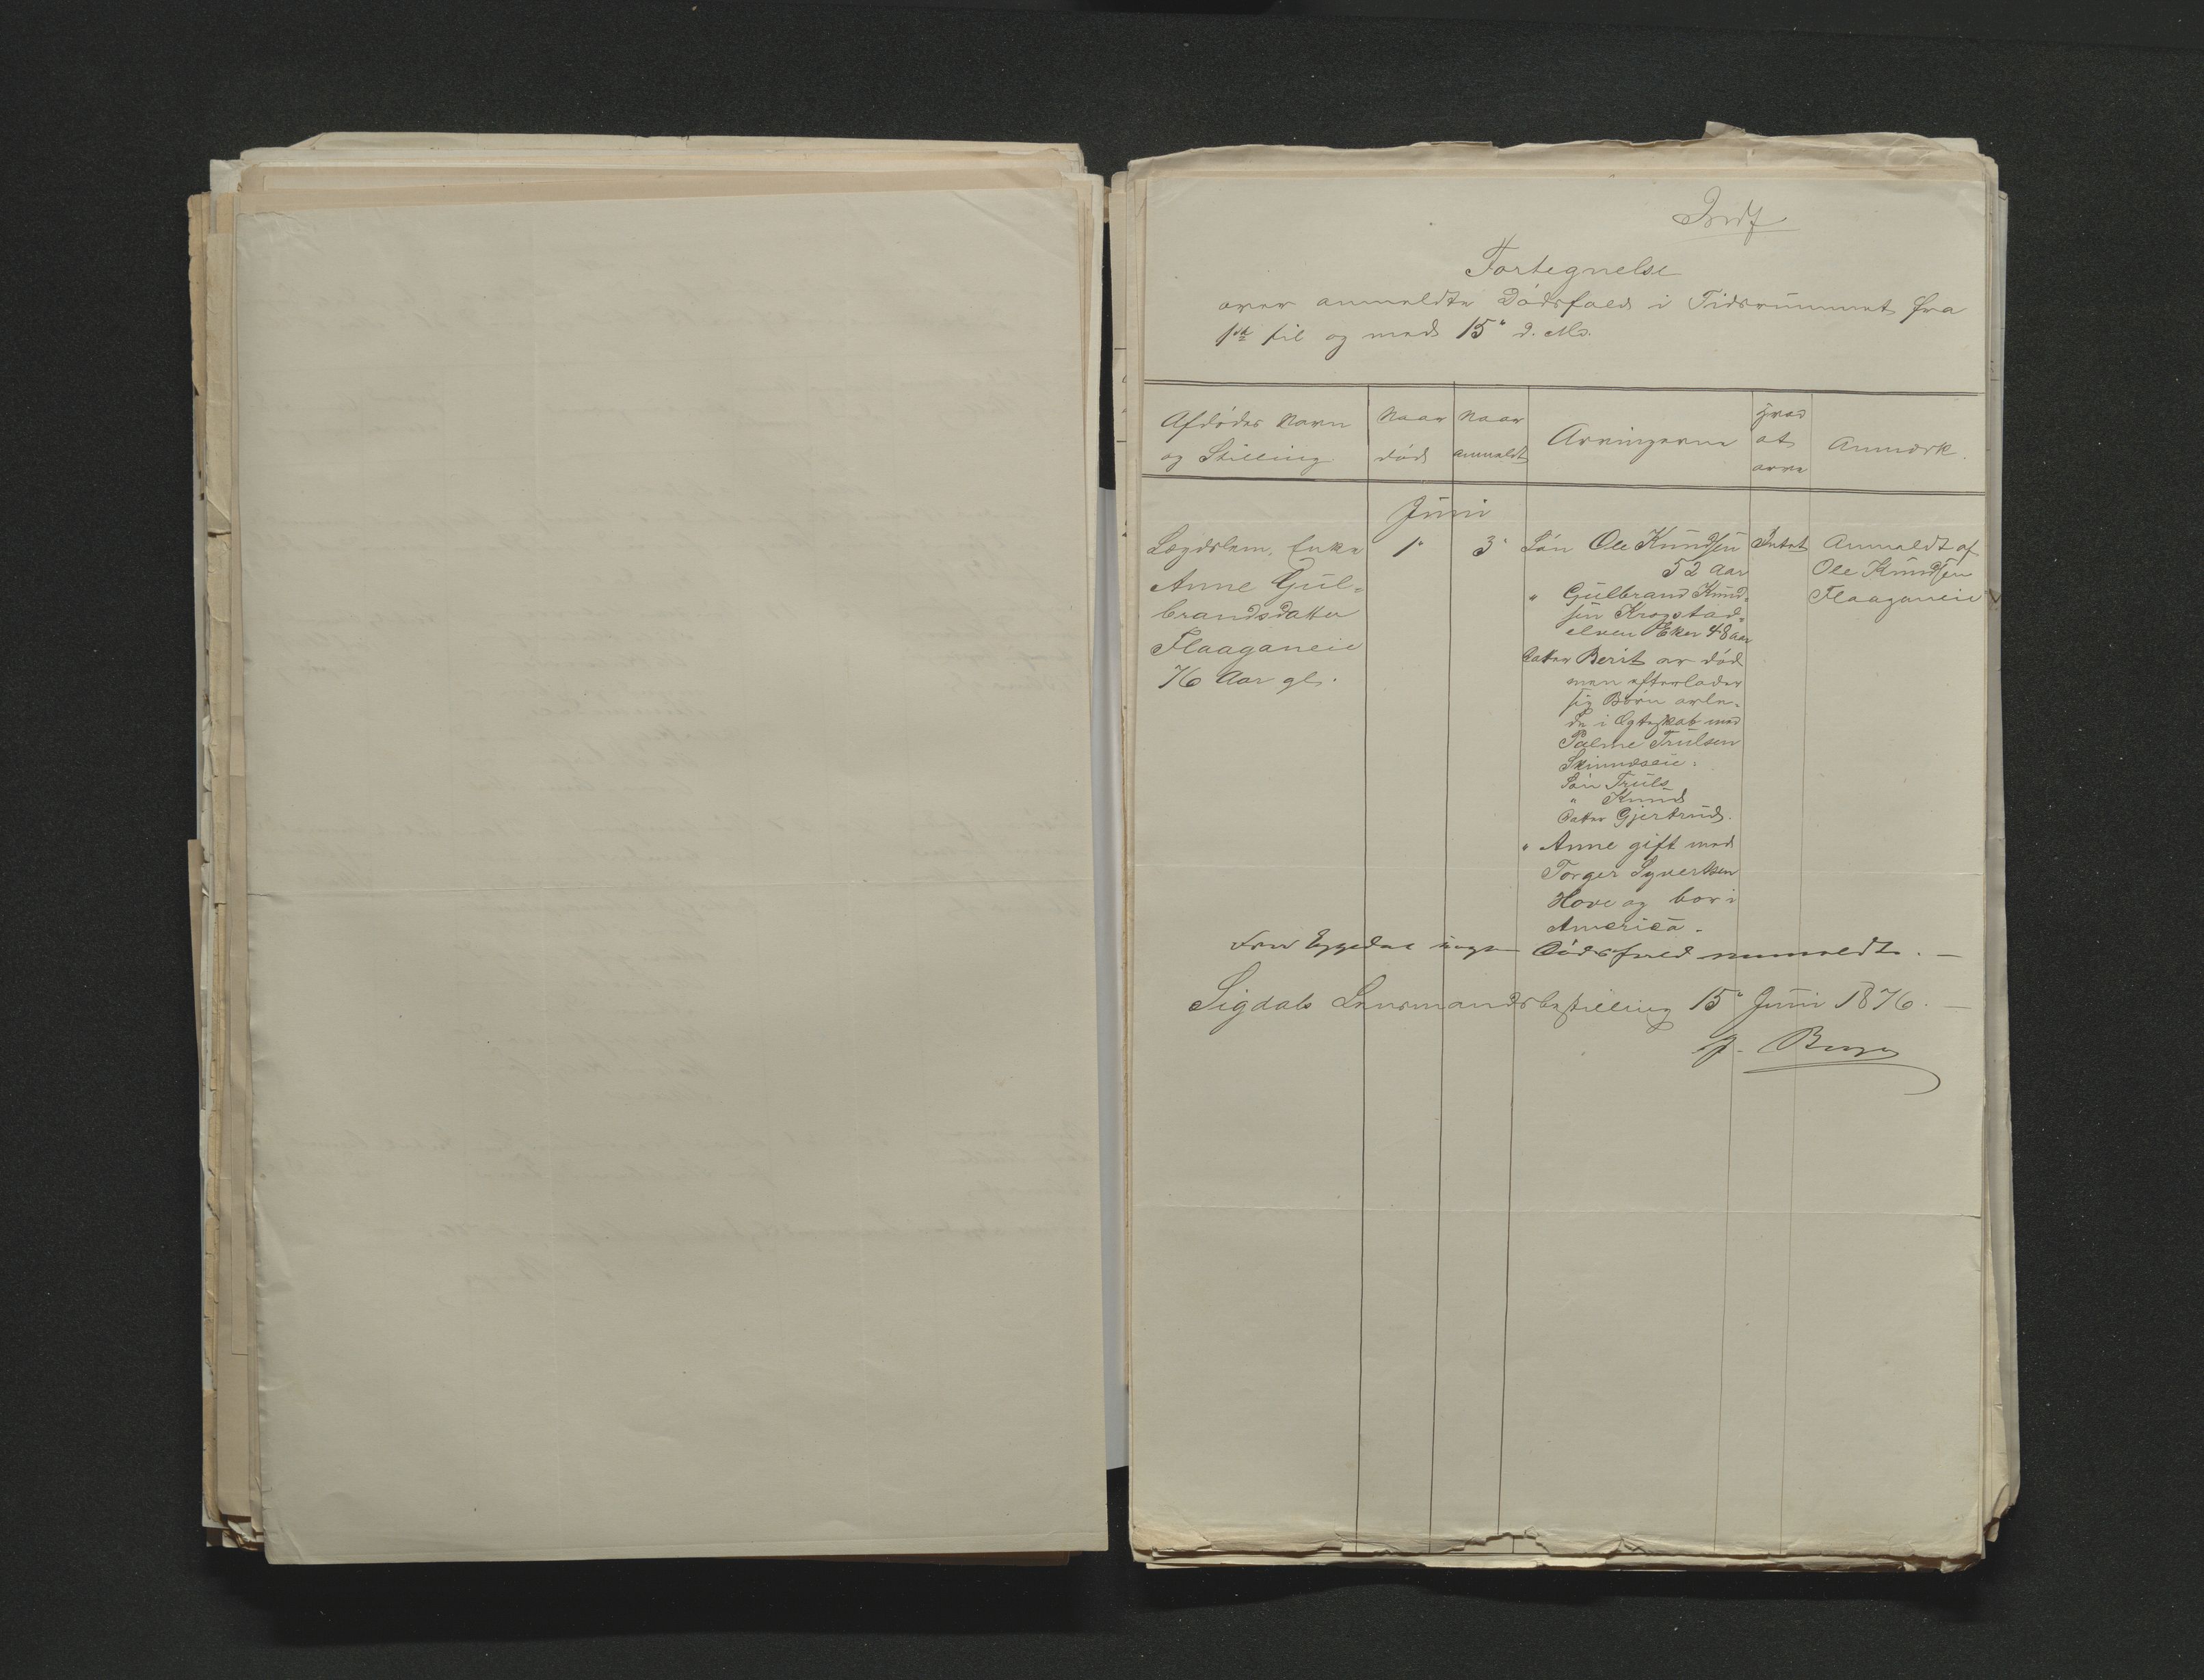 Indf
Fortegnelse
over anmeldte Dödsfald i Tidsrummet fra
1ste til og med 15" d. Ms.
Afdödes Navn
og Stilling
Naar
död
Naar
anmeldt
Arvingerne
Hvad
at
arve
Anmærk.
Juni
Lægdslem, Enke
Anne Gul=
brandsdatter
Flaaganeie
76 Aar gl.
1"
3"
Sön Ole Knudsen
52 Aar
" Gulbrand Knud=
sen Krogstad=
elven Eker 48 aar
Datter Berit er död
men efterlader
sig Börn avle=
de i Egteskab med
Palme Trulsen
Skinnæseie:
Sön Truls
" Knud
Datter Gjertrud.
" Anne gift med
Torger Syvertsen
Hove og bor i
America.
Intet
Anmeldt af
Ole Knudsen
Flaaganeie
Fra Eggedal ingen Dödsfald anmeldt. —
Sigdals Lensmandsbestilling 15" Juni 1876. —